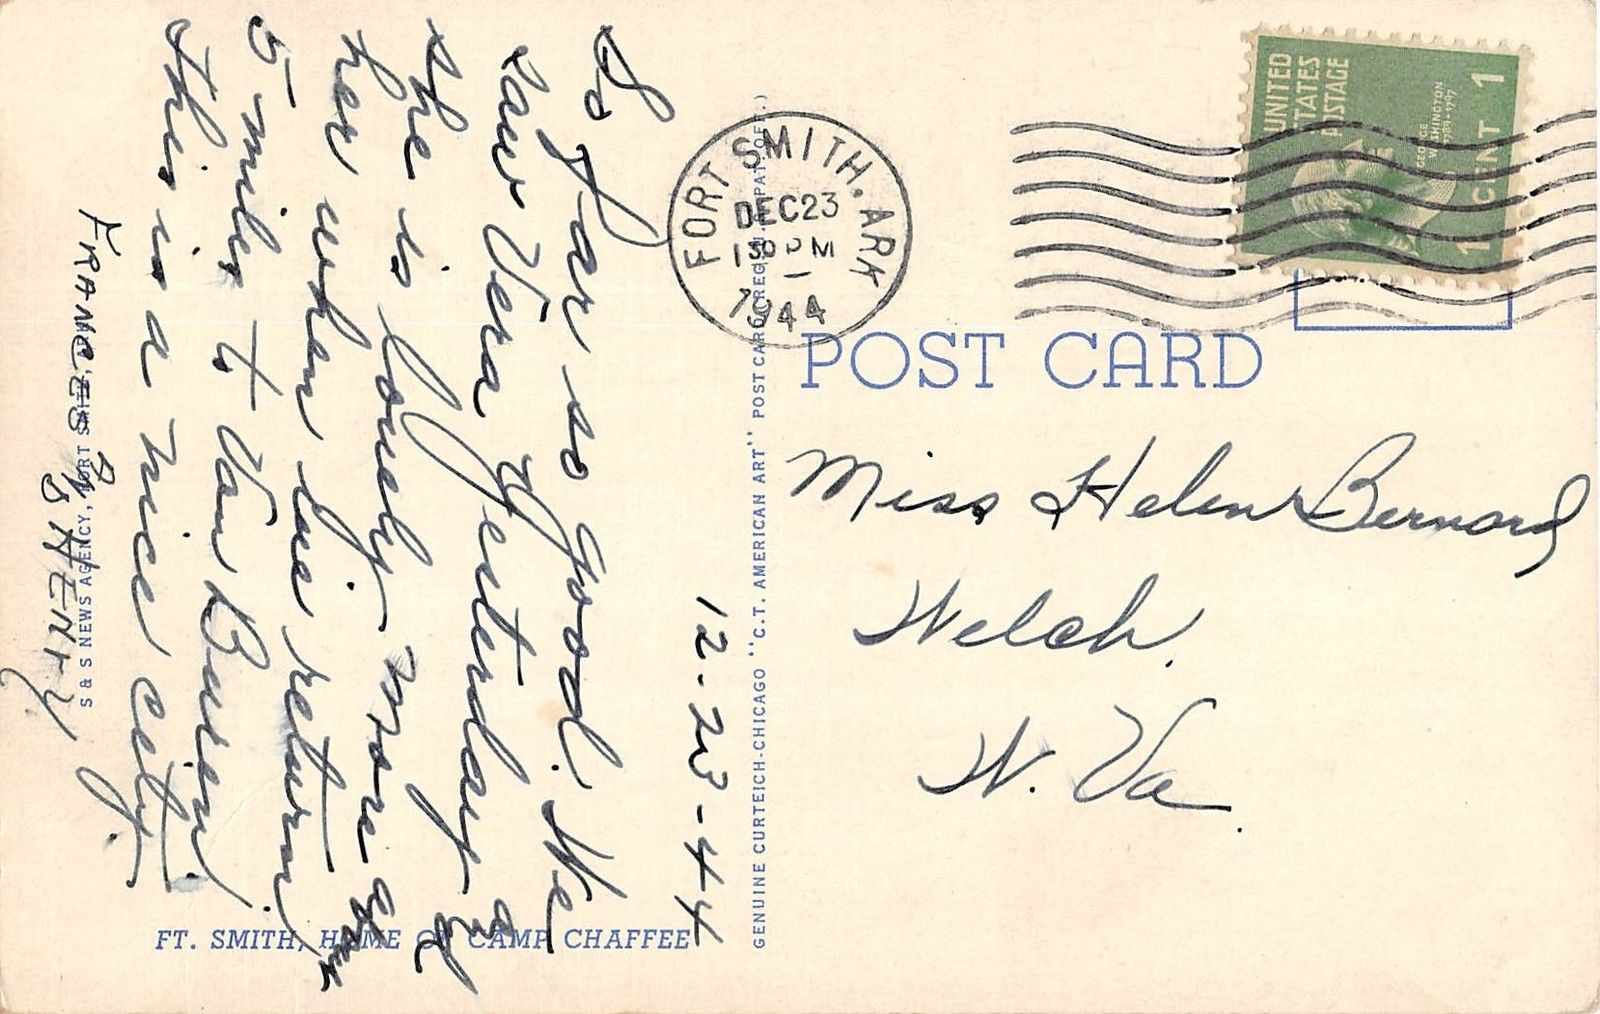 12-23-44
So far so good. We
saw Vera yesterday &
she is lonely more
her when she return
5-miles to Van Buren.
This is a nice city.
FRANCES &
HENRY
FT. SMITH, HOME OF CAMP CHAFFEE
S & S NEWS AGENCY, FORT SMITH
GENUINE CURTEICH-CHICAGO "C.T. AMERICAN ART" POST CARD (REG. U.S. PAT. OFF.)
FORT SMITH. ARK
DEC 23
PM
1944
UNITED
STATES
POSTAGE
GEORGE
WASHINGTON
1789-1797
1 CENT 1
POST CARD
Miss Helen Bernard
Welch.
W. Va.